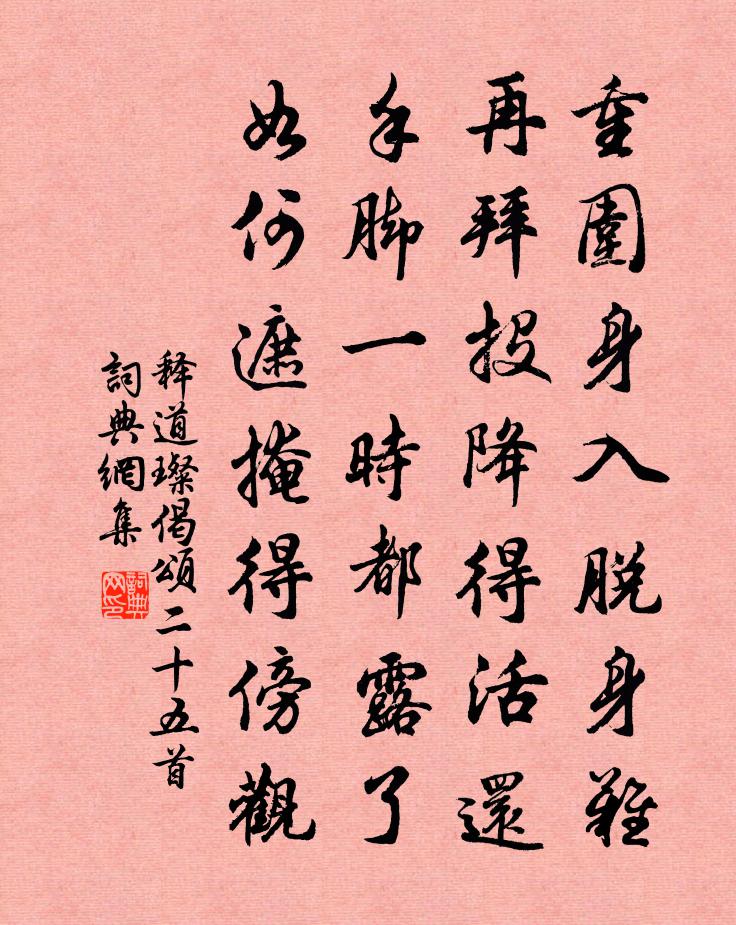 重圍身入脫身難
再拜投降得活還
手脚一時都露了
如何遮掩得傍觀
释道璨偈頌二十五首
詞典網集
詞典网印